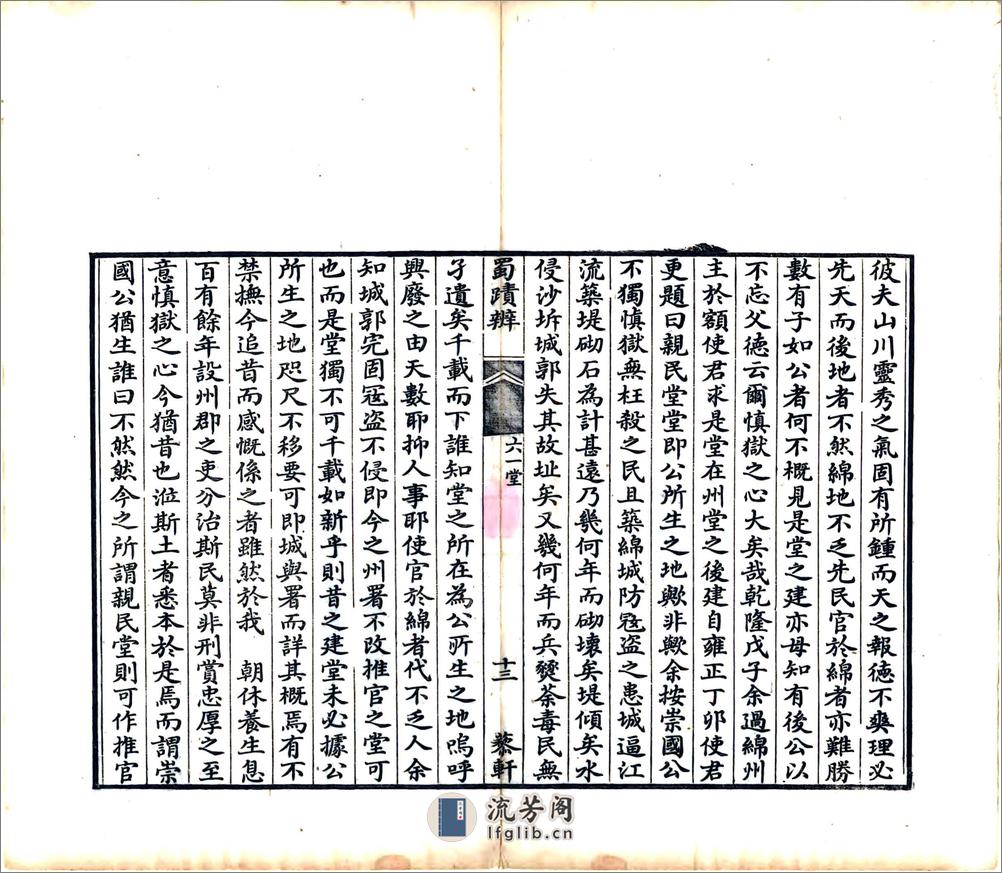 彼夫山川靈秀之氣固有所鍾而天之報德不爽理必
先天而後地者不然綿地不乏先民官於綿者亦難勝
數有子如公者何不概見是堂之建亦毋知有後公以
不忘父德云爾慎獄之心大矣哉乾隆戊子余過綿州
主於額使君求是堂在州堂之後建自雍正丁卯使君
更題曰親民堂堂即公所生之地歟非歟余按崇國公
不獨慎獄無枉殺之民且築綿城防寇盜之患城逼江
流築堤砌石為計甚遠乃幾何年而砌壞矣堤傾矣水
侵沙坼城郭失其故址矣又幾何年而兵燹荼毒民無
蜀蹟辨 六一堂 十三 慕軒
孑遺矣千載而下誰知堂之所在為公所生之地嗚呼
興廢之由天數耶抑人事耶使官於綿者代不乏人余
知城郭完固寇盜不侵即今之州署不改推官之堂可
也而是堂獨不可千載如新乎則昔之建堂未必據公
所生之地咫尺不移要可即城與署而詳其概焉有不
禁撫今追昔而感慨係之者雖然於我 朝休養生息
百有餘年設州郡之吏分治斯民莫非刑賞忠厚之至
意慎獄之心今猶昔也涖斯土者悉本於是焉而謂崇
國公猶生誰曰不然然今之所謂親民堂則可作推官
流芳阁
lfglib.cn